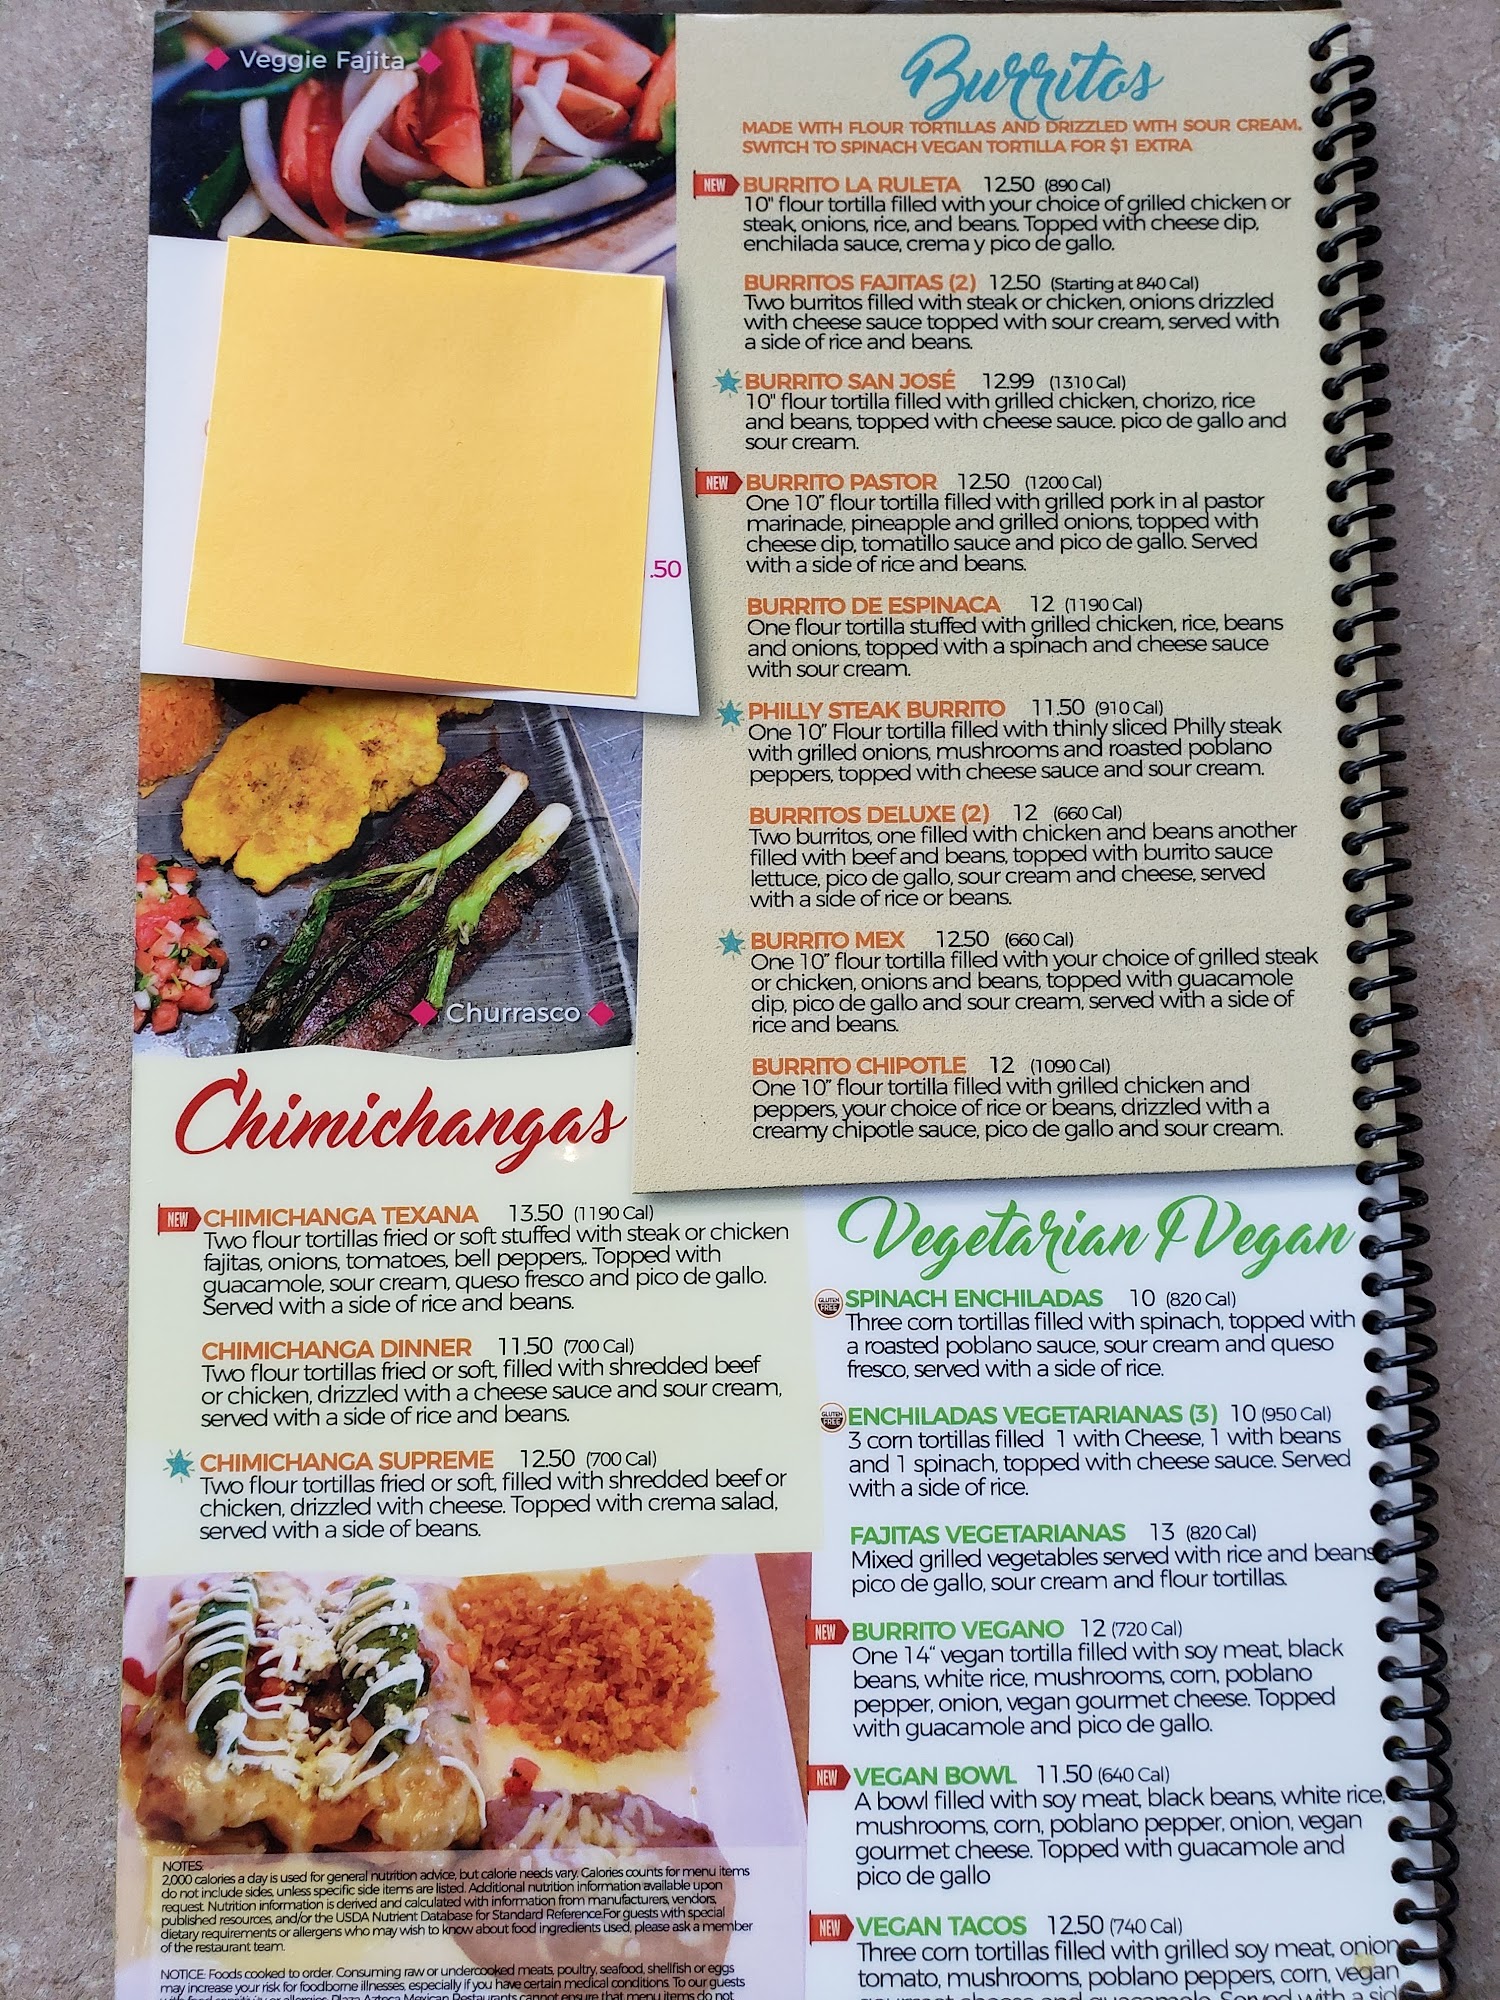 Veggie Fajita
.50
Churrasco
Burritos
MADE WITH FLOUR TORTILLAS AND DRIZZLED WITH SOUR CREAM.
SWITCH TO SPINACH VEGAN TORTILLA FOR $1 EXTRA
NEW BURRITO LA RULETA 12.50 (890 Cal)
10" flour tortilla filled with your choice of grilled chicken or
steak, onions, rice, and beans. Topped with cheese dip,
enchilada sauce, crema y pico de gallo.
BURRITOS FAJITAS (2) 12.50 (Starting at 840 Cal)
Two burritos filled with steak or chicken, onions drizzled
with cheese sauce topped with sour cream, served with
a side of rice and beans.
BURRITO SAN JOSÉ 12.99 (1310 Cal)
10" flour tortilla filled with grilled chicken, chorizo, rice
and beans, topped with cheese sauce. pico de gallo and
sour cream.
NEW BURRITO PASTOR 12.50 (1200 Cal)
One 10” flour tortilla filled with grilled pork in al pastor
marinade, pineapple and grilled onions, topped with
cheese dip, tomatillo sauce and pico de gallo. Served
with a side of rice and beans.
BURRITO DE ESPINACA 12 (1190 Cal)
One flour tortilla stuffed with grilled chicken, rice, beans
and onions, topped with a spinach and cheese sauce
with sour cream.
PHILLY STEAK BURRITO 11.50 (910 Cal)
One 10” Flour tortilla filled with thinly sliced Philly steak
with grilled onions, mushrooms and roasted poblano
peppers, topped with cheese sauce and sour cream.
BURRITOS DELUXE (2) 12 (660 Cal)
Two burritos, one filled with chicken and beans another
filled with beef and beans, topped with burrito sauce
lettuce, pico de gallo, sour cream and cheese, served
with a side of rice or beans.
BURRITO MEX 12.50 (660 Cal)
One 10” flour tortilla filled with your choice of grilled steak
or chicken, onions and beans, topped with guacamole
dip, pico de gallo and sour cream, served with a side of
rice and beans.
BURRITO CHIPOTLE 12 (1090 Cal)
One 10” flour tortilla filled with grilled chicken and
peppers, your choice of rice or beans, drizzled with a
creamy chipotle sauce, pico de gallo and sour cream.
Chimichangas
NEW CHIMICHANGA TEXANA 13.50 (1190 Cal)
Two flour tortillas fried or soft stuffed with steak or chicken
fajitas, onions, tomatoes, bell peppers,. Topped with
guacamole, sour cream, queso fresco and pico de gallo.
Served with a side of rice and beans.
CHIMICHANGA DINNER 11.50 (700 Cal)
Two flour tortillas fried or soft, filled with shredded beef
or chicken, drizzled with a cheese sauce and sour cream,
served with a side of rice and beans.
CHIMICHANGA SUPREME 12.50 (700 Cal)
Two flour tortillas fried or soft, filled with shredded beef or
chicken, drizzled with cheese. Topped with crema salad,
served with a side of beans.
Vegetarian /Vegan
GLUTEN FREE SPINACH ENCHILADAS 10 (820 Cal)
Three corn tortillas filled with spinach, topped with
a roasted poblano sauce, sour cream and queso
fresco, served with a side of rice.
GLUTEN FREE ENCHILADAS VEGETARIANAS (3) 10 (950 Cal)
3 corn tortillas filled 1 with Cheese, 1 with beans
and 1 spinach, topped with cheese sauce. Served
with a side of rice.
FAJITAS VEGETARIANAS 13 (820 Cal)
Mixed grilled vegetables served with rice and beans
pico de gallo, sour cream and flour tortillas.
NEW BURRITO VEGANO 12 (720 Cal)
One 14“ vegan tortilla filled with soy meat, black
beans, white rice, mushrooms, corn, poblano
pepper, onion, vegan gourmet cheese. Topped
with guacamole and pico de gallo.
NEW VEGAN BOWL 11.50 (640 Cal)
A bowl filled with soy meat, black beans, white rice,
mushrooms, corn, poblano pepper, onion, vegan
gourmet cheese. Topped with guacamole and
pico de gallo
NEW VEGAN TACOS 12.50 (740 Cal)
Three corn tortillas filled with grilled soy meat, onion
tomato, mushrooms, poblano peppers, corn, vegan
gourmet cheese and guacamole. Served with a side
NOTES:
2,000 calories a day is used for general nutrition advice, but calorie needs vary. Calories counts for menu items
do not include sides, unless specific side items are listed. Additional nutrition information available upon
request. Nutrition information is derived and calculated with information from manufacturers, vendors,
published resources, and/or the USDA Nutrient Database for Standard Reference.For guests with special
dietary requirements or allergens who may wish to know about food ingredients used, please ask a member
of the restaurant team.
NOTICE: Foods cooked to order. Consuming raw or undercooked meats, poultry, seafood, shellfish or eggs
may increase your risk for foodborne illnesses, especially if you have certain medical conditions. To our guests
with food sensitivity or allergies, Plaza Azteca Mexican Restaurants cannot ensure that menu items do not